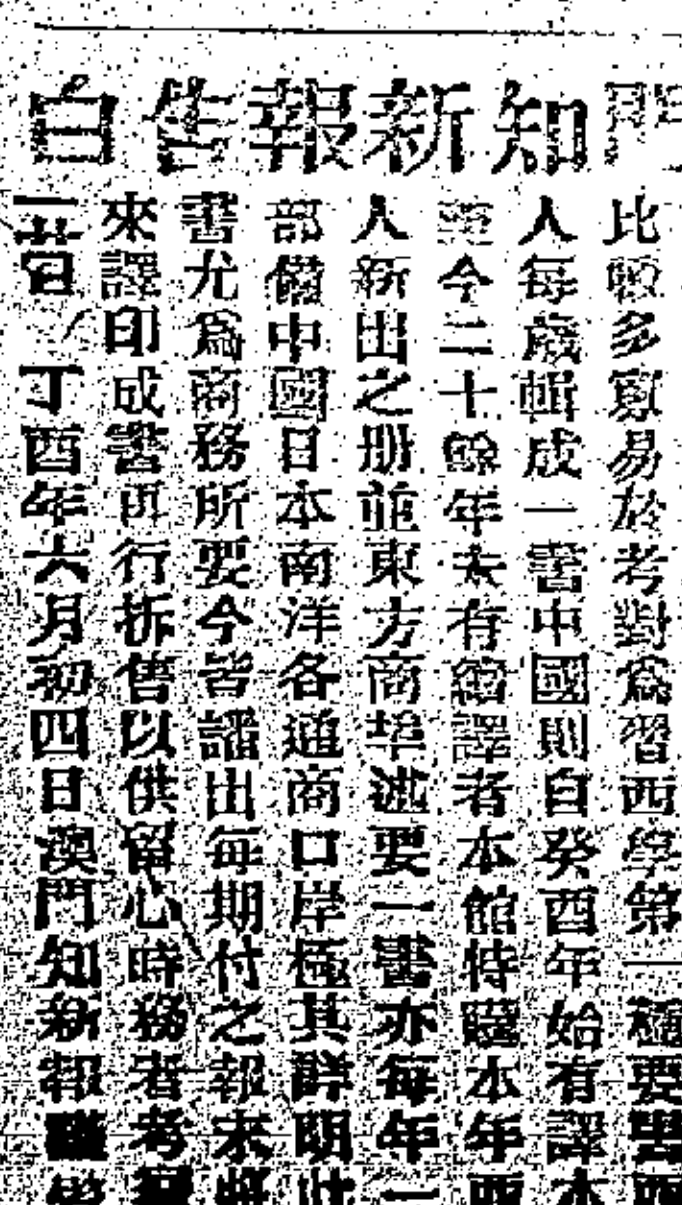 門知新報告白
比較多寡易於考對為習西學第一種要書西
人每歲輯成一書中國則自癸酉年始有譯本
今二十餘年未有續譯者本館特購本年西
人新出之册並東方商埠述要一書亦每年一
部備中國日本南洋各通商口岸極其詳明此
書尤爲商務所要今皆譒出每期付之報末將
來譯印成書再行拆售以供留心時務者考
丁酉年六月初四日澳門知新報